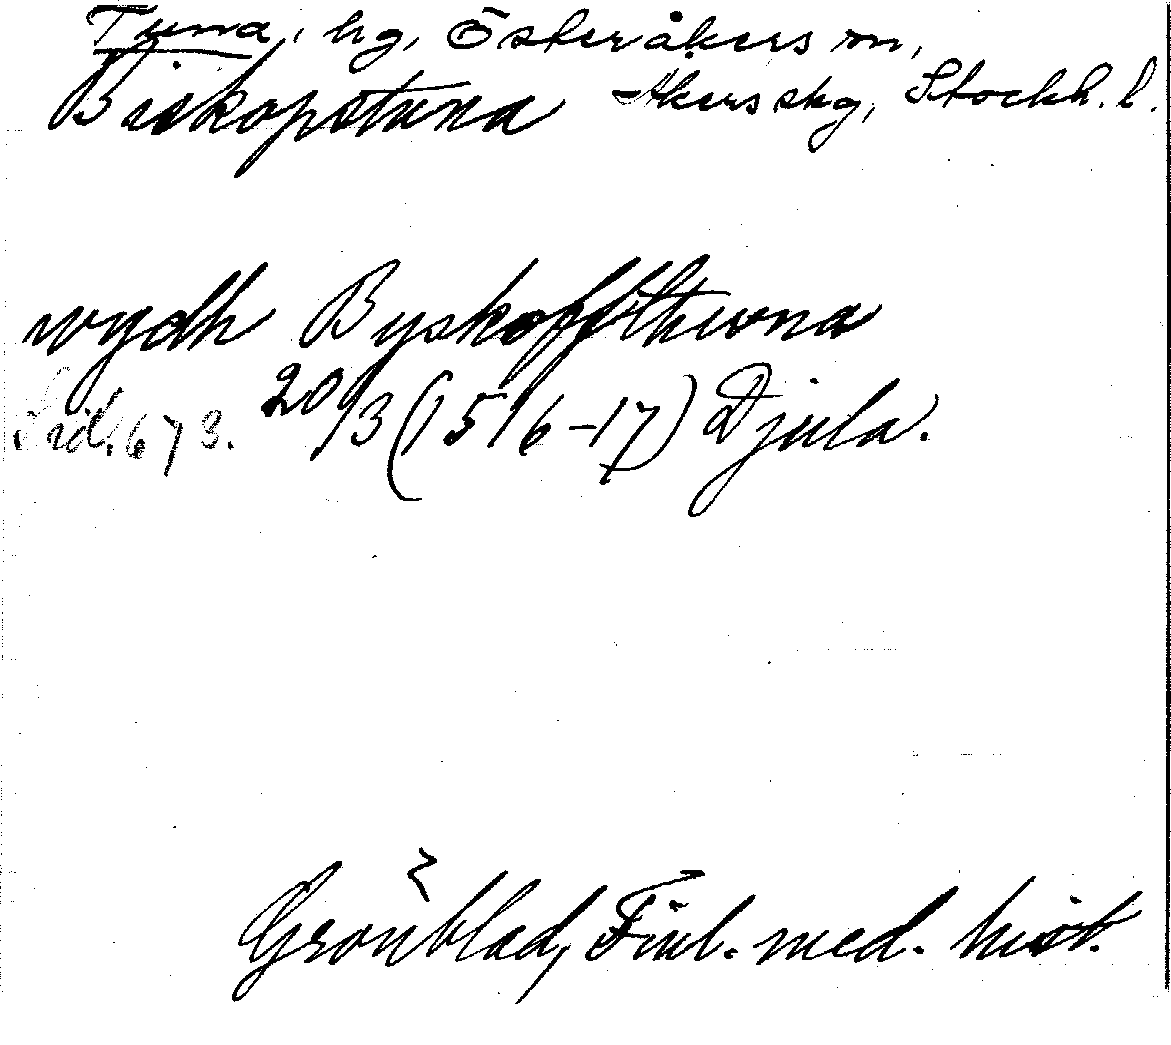 Tuna, hg, Österåkers sn,
Biskopstuna Åkers skg, Stockh. l.
wydh Byskoffsthwna
Sid. 673. 20/3 (1516-17) Djula.
Grönblad, Finl. med. hist.